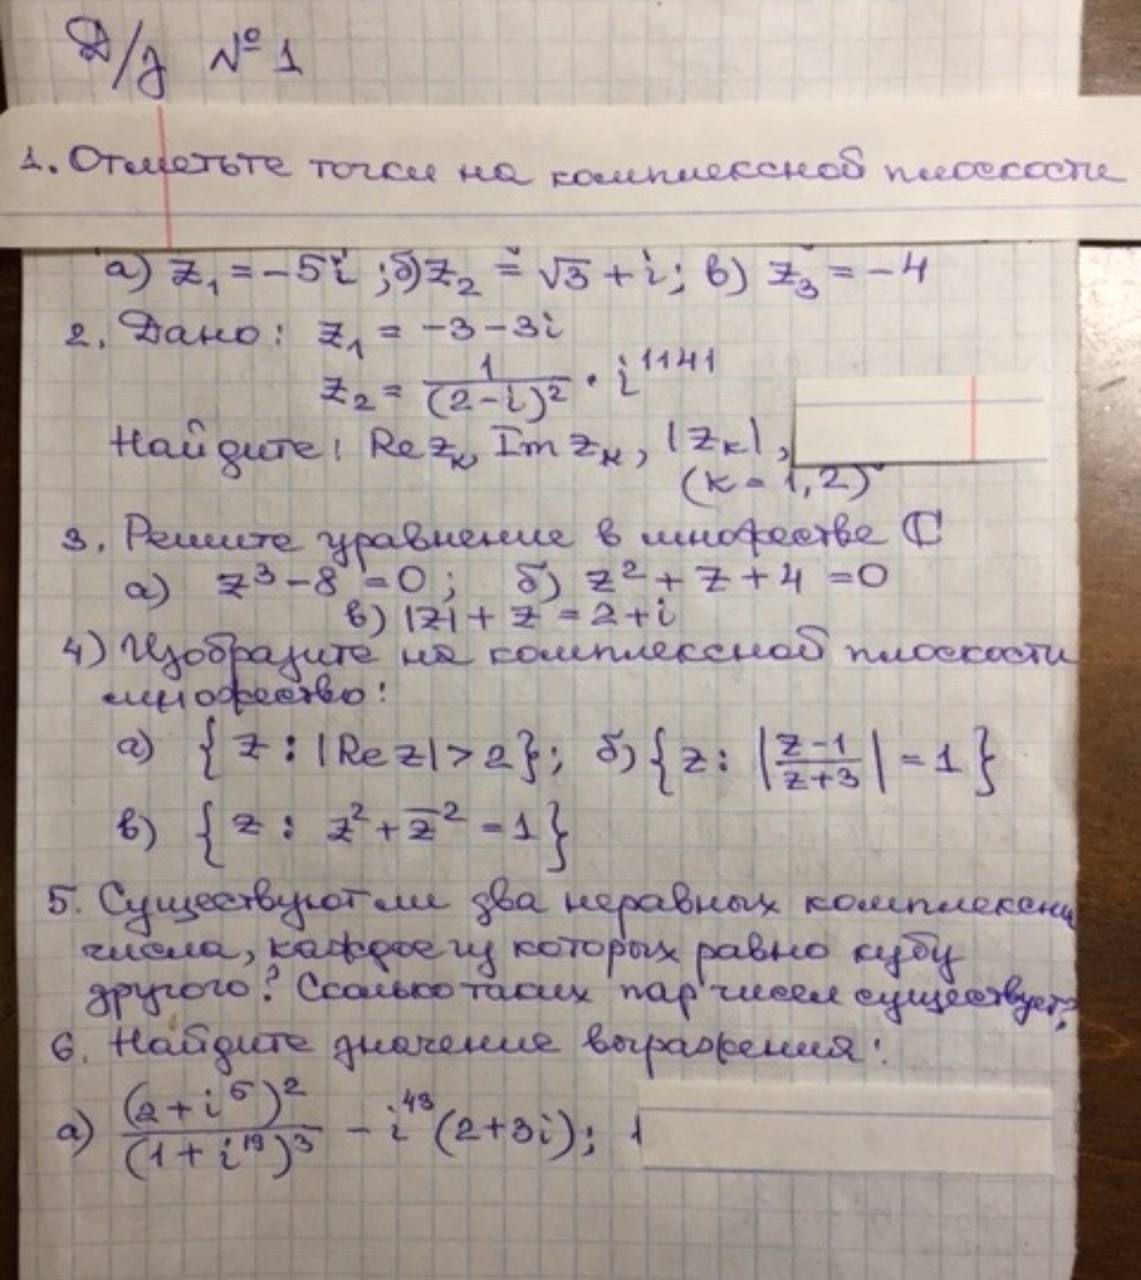 Д/з № 1
1. Отметьте точки на комплексной плоскости
а) z₁ = -5i ; б) z₂ = √3 + i; в) z₃ = -4
2. Дано: z₁ = -3 - 3i
z₂ = 1/(2-i)² · i¹¹⁴¹
Найдите: Re zₖ, Im zₖ, |zₖ|,
(к = 1,2)
3. Решите уравнение в множестве ℂ
а) z³ - 8 = 0; б) z² + z + 4 = 0
в) |z| + z = 2 + i
4) Изобразите на комплексной плоскости
множество:
а) {z : |Re z| > 2}; б) {z : |(z-1)/(z+3)| = 1}
в) {z : z² + z̅² = 1}
5. Существуют ли два неравных комплексны
числа, каждое из которых равно кубу
другого? Сколько таких пар чисел существует?
6. Найдите значение выражения:
а) (2+i⁵)²/(1+i¹⁹)³ - i⁴³(2+3i);